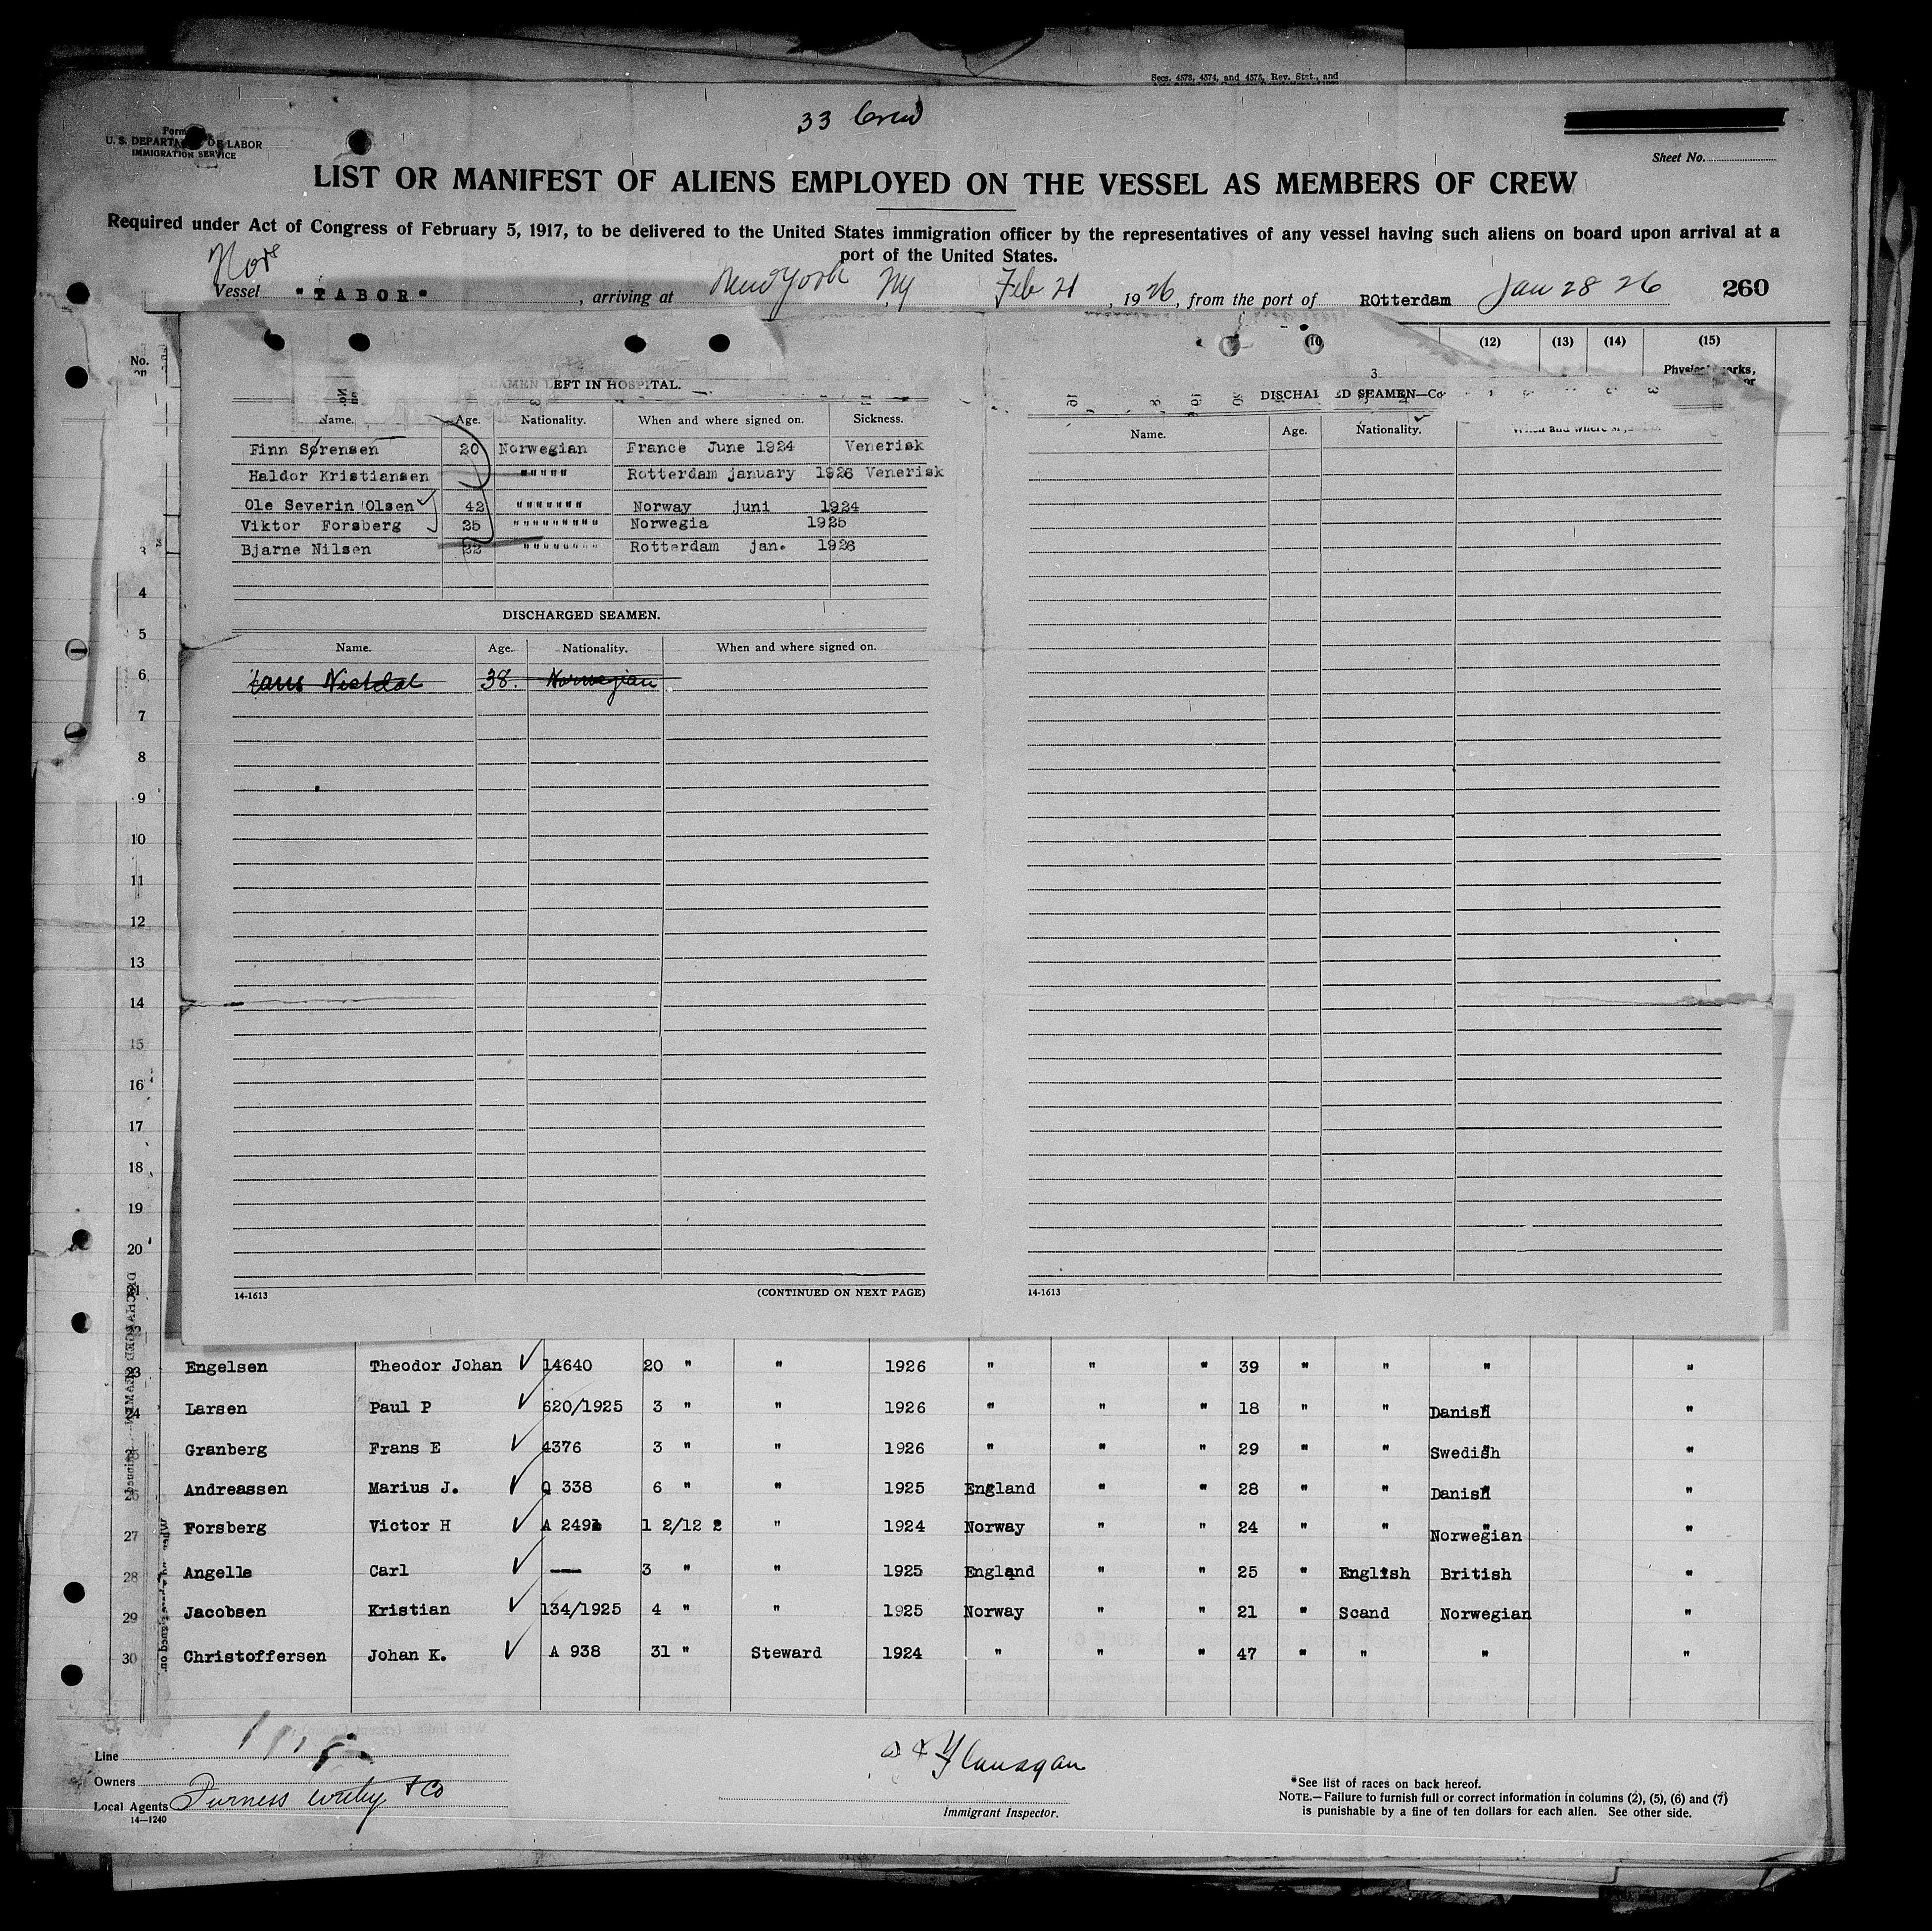 Secs. 4573, 4574, and 4575, Rev. Stat., and
33 Crew
Form
U. S. DEPARTM OF LABOR
IMMIGRATION SERVICE
Sheet No.
LIST OR MANIFEST OF ALIENS EMPLOYED ON THE VESSEL AS MEMBERS OF CREW
Required under Act of Congress of February 5, 1917, to be delivered to the United States immigration officer by the representatives of any vessel having such aliens on board upon arrival at a
port of the United States.
Nor
Vessel "TABOR", arriving at New York NY Feb 21, 1926, from the port of ROtterdam Jan 28 26 260
No. on (10 (12) (13) (14) (15)
3
SEAMEN LEFT IN HOSPITAL.
Name. Age. Nationality. When and where signed on. Sickness.
Finn Sørensen 20 Norwegian France June 1924 Venerisk
Haldor Kristiansen """"" Rotterdam january 1926 Venerisk
Ole Severin Olsen 42 """"""" Norway juni 1924
Viktor Forsberg 25 """"""""" Norwegia 1925
Bjarne Nilsen 22 """""""" Rotterdam jan. 1926
DISCHARGED SEAMEN.
Name. Age. Nationality. When and where signed on.
38. Norwegian
14-1613 (CONTINUED ON NEXT PAGE)
DISCHAR ED SEAMEN—Co
Name. Age. Nationality.
14-1613
3
4
5
6
7
8
9
10
11
12
13
14
15
16
17
18
19
20
23 Engelsen Theodor Johan ✓ 14640 20 " " 1926 " " " 39 " " " "
24 Larsen Paul P ✓ 620/1925 3 " " 1926 " " " 18 " " Danish "
Granberg Frans E ✓ 4376 3 " " 1926 " " " 29 " " Swedish "
26 Andreassen Marius J. ✓ Q 338 6 " " 1925 England " " 28 " " Danish "
27 Forsberg Victor H ✓ A 249 1 2/12 " 1924 Norway " " 24 " " Norwegian "
28 Angelle Carl ✓ — 3 " " 1925 England " " 25 " English British "
29 Jacobsen Kristian ✓ 134/1925 4 " " 1925 Norway " " 21 " Scand Norwegian "
30 Christoffersen Johan K. ✓ A 938 31 " Steward 1924 " " " 47 " " " "
Line
Owners
Local Agents Furness Withy & Co
14—1240
Flanagan
Immigrant Inspector.
*See list of races on back hereof.
NOTE.—Failure to furnish full or correct information in columns (2), (5), (6) and (7)
is punishable by a fine of ten dollars for each alien. See other side.